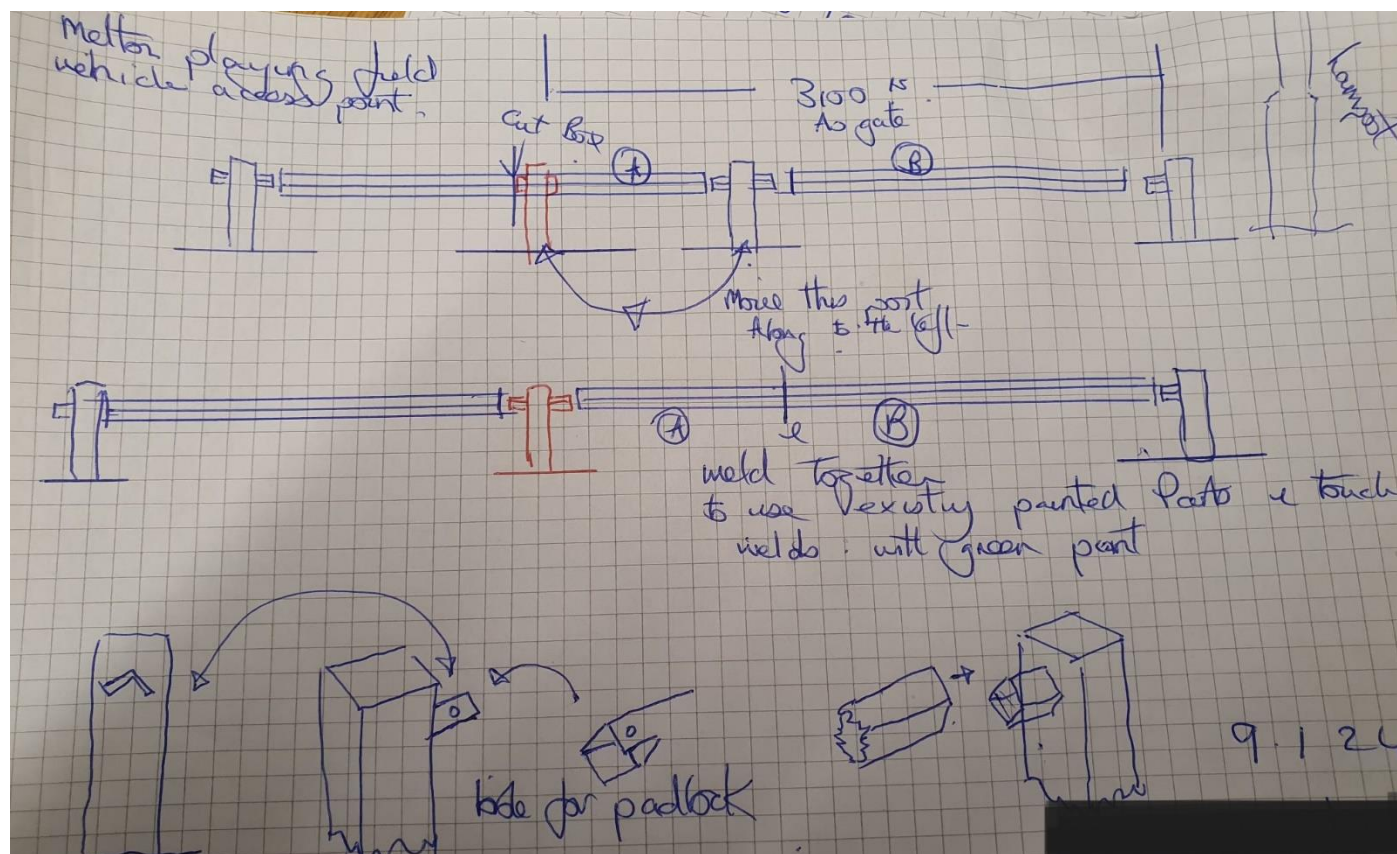 Mellor playing field
vehicle access point.
Cut
3100 is
As gate
A
B
Move this post
Along to the left
A
B
weld together
to use existing painted Parts & touch
welds. with green paint
hole for padlock
9.1.2